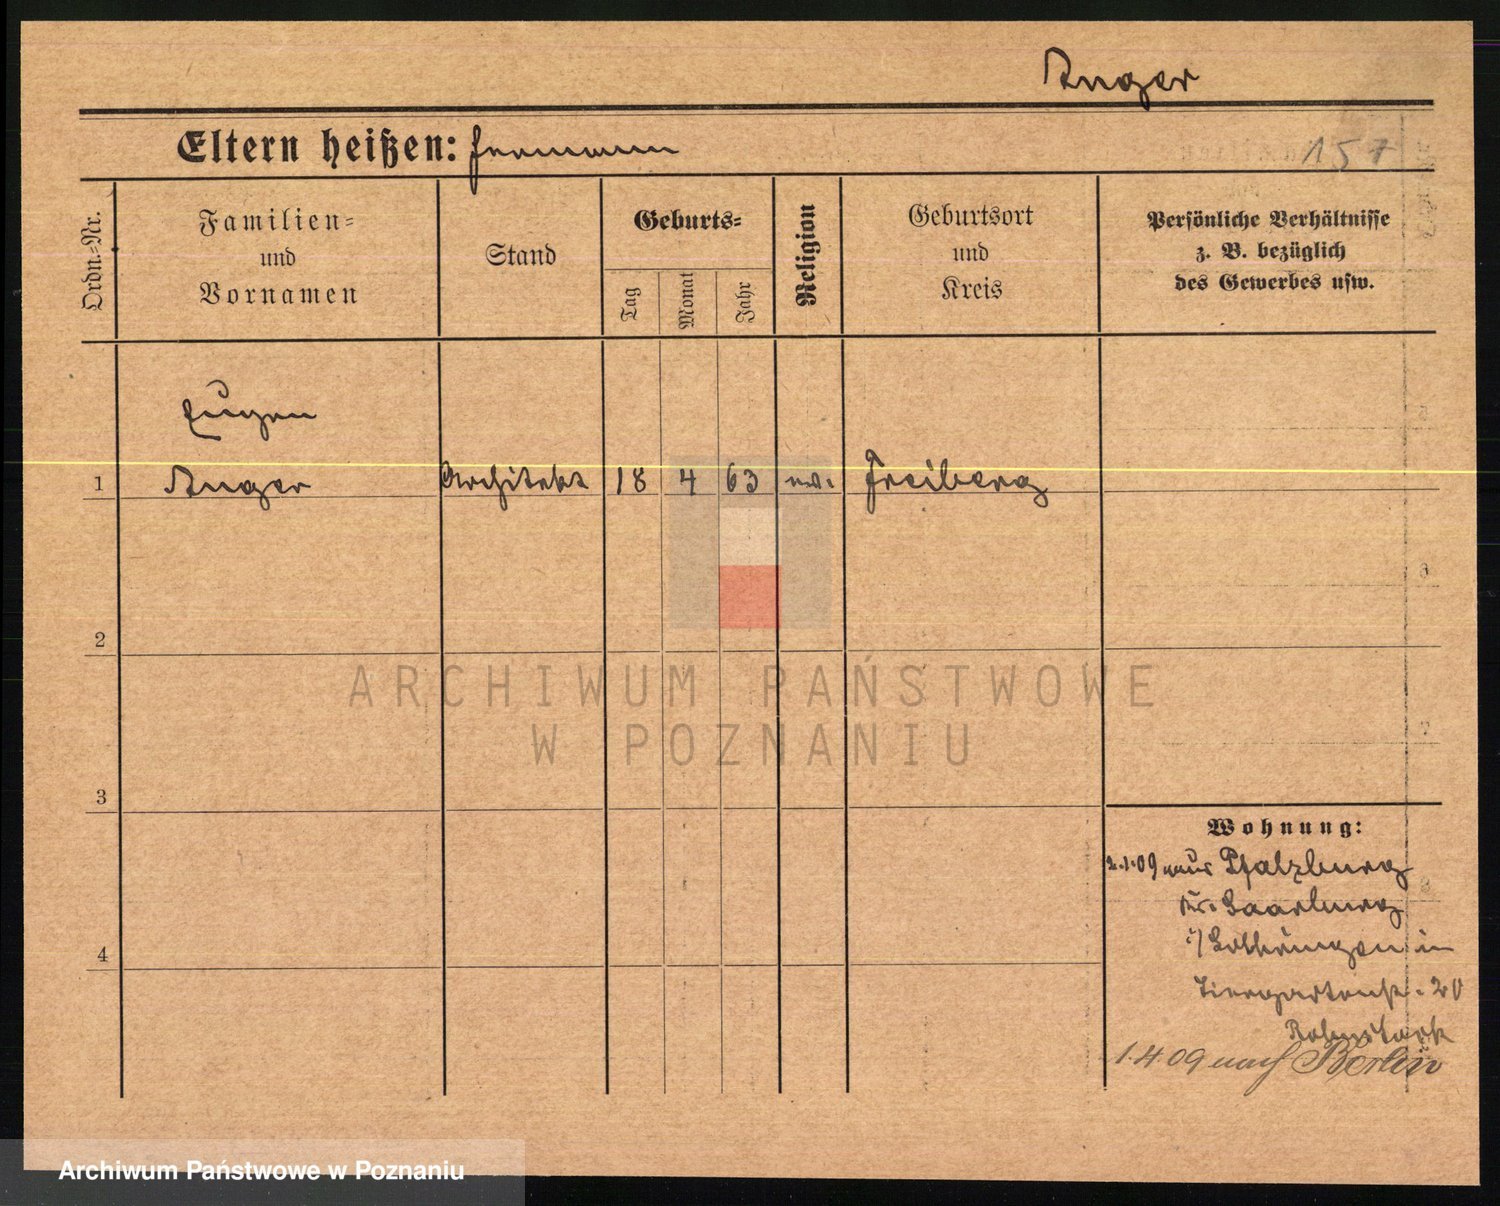 Anger
Eltern heißen: Hermann
157
Ordn.-Nr.
Familien-
und
Vornamen
Stand
Geburts-
Tag
Monat
Jahr
Religion
Geburtsort
und
Kreis
Persönliche Verhältnisse
z. B. bezüglich
des Gewerbes usw.
Eugen
1 Anger Architekt 18 4 63 ev. Freiberg
2
ARCHIWUM PAŃSTWOWE
W POZNANIU
3
4
Wohnung:
2.1.09 aus Pfalzburg
Kr. Saarburg
i/ Lothringen in
Tiergartenstr. 20
1.4.09 nach Berlin
Archiwum Państwowe w Poznaniu